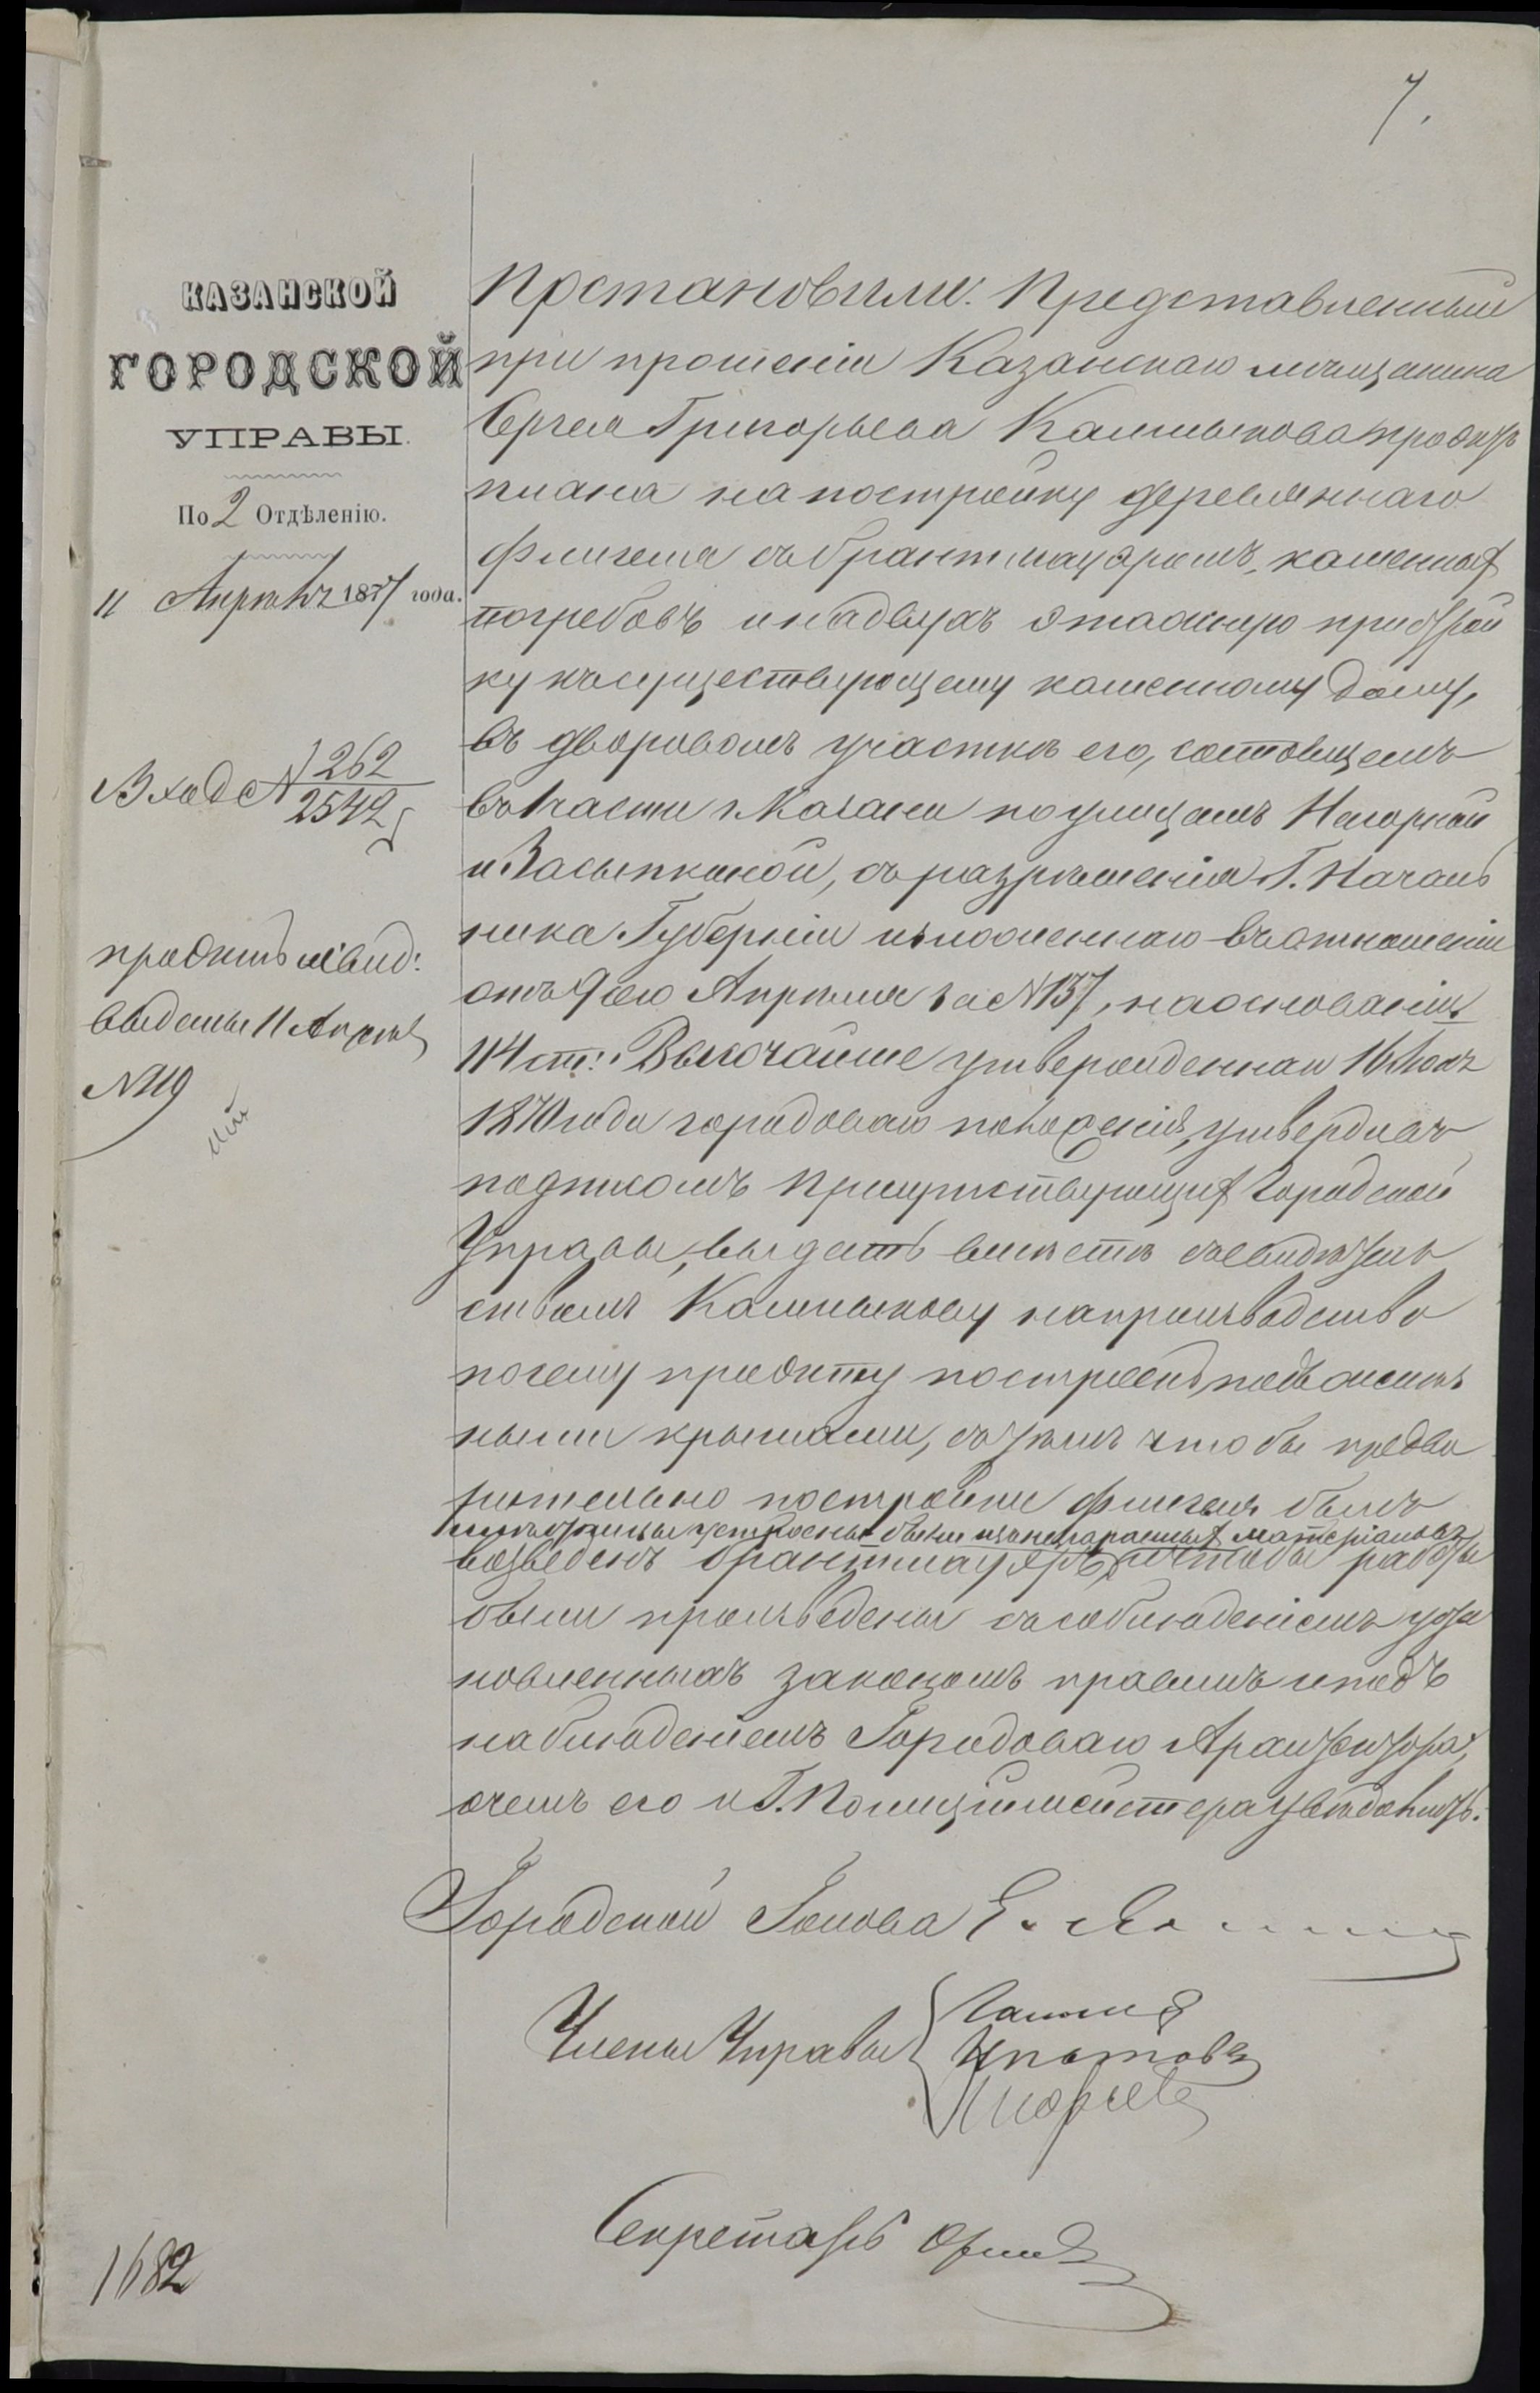 7.
КАЗАНСКОЙ
ГОРОДСКОЙ
УПРАВЫ.
По 2 Отдѣленію.
11 Апрѣля 1877 года.
Вход № 262
2542
проэктъ и свид:
выданы 11 Апрѣля
№ 119
1682
Постановили: Представленный
при прошеніи Казанскаго мѣщанина
Сергея Григорьева Калмыкова проэктъ
плана на постройку деревяннаго
флигеля съ брантмауэромъ, каменныхъ
погребовъ и надвухъ этажную пристрой
ку къ существующему каменному дому,
въ дворовомъ участкѣ его, состоящемъ
въ части г. Казани по улицамъ Нагорной
и Засыпкиной, съ разрѣшенія Г. Началь
ника Губерніи изложеннаго въ отношеніи
отъ 9 сего Апрѣля за № 137, на основаніи
114 ст: Высочайше утвержденнаго 16 Іюня
1870 года городоваго положенія, утвердивъ
подписомъ Присутствующихъ Городской
Управы, выдать вмѣстѣ съ свидѣтель
ствомъ Калмыкову на производство
по сему проэкту построекъ, подъ желѣз
ными крышами, съ тѣмъ чтобы предва
рительно постройки флигеля былъ
устроены были изъ несгараемыхъ матеріаловъ
возведенъ брантмауэръ, и чтобы работы
были произведены съ соблюденіемъ уста
новленныхъ закономъ правилъ и подъ
наблюденіемъ Городоваго Архитектора,
о чемъ его и Г. Полиціймейстера увѣдомить.
Городской Голова Е.
Члены Управы
Ипатовъ
Секретарь